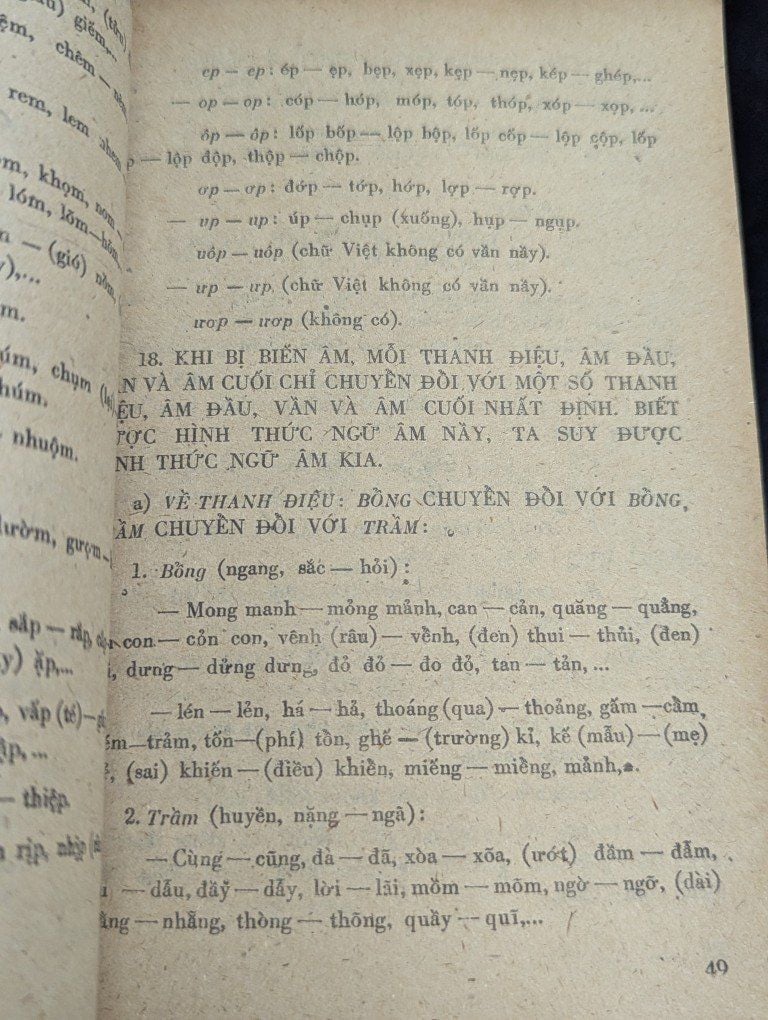 ep — ep: ép — ẹp, bẹp, xẹp, kẹp — nẹp, kép — ghép,...
— op — op: cóp — hóp, móp, tóp, thóp, xóp — xọp, ...
ôp — ôp: lốp bốp — lộp bộp, lốp cốp — lộp cộp, lốp
— lộp độp, thộp — chộp.
ơp — ơp: đớp — tớp, hớp, lợp — rợp.
— up — up: úp — chụp (xuống), hụp — ngụp.
uôp — uôp (chữ Việt không có vần nầy).
— ưp — ưp (chữ Việt không có vần nầy).
ươp — ươp (không có).
18. KHI BỊ BIẾN ÂM, MỖI THANH ĐIỆU, ÂM ĐẦU,
VÀ ÂM CUỐI CHỈ CHUYỂN ĐỔI VỚI MỘT SỐ THANH
ÂM ĐẦU, VẦN VÀ ÂM CUỐI NHẤT ĐỊNH. BIẾT
HÌNH THỨC NGỮ ÂM NẦY, TA SUY ĐƯỢC
THỨC NGỮ ÂM KIA.
a) VỀ THANH ĐIỆU: BỔNG CHUYỂN ĐỔI VỚI BỔNG,
CHUYỂN ĐỔI VỚI TRẦM:
1. Bổng (ngang, sắc — hỏi):
— Mong manh — mỏng mảnh, can — cản, quăng — quẳng,
con — cỏn con, vênh (râu) — vểnh, (đen) thui — thủi, (đen)
dưng — dửng dưng, đỏ đỏ — đo đỏ, tan — tản, ...
— lén — lẻn, há — hả, thoáng (qua) — thoảng, gấm — cẩm,
— trảm, tốn — (phí) tổn, ghế — (trường) kỉ, kế (mẫu) — (mẹ)
(sai) khiến — (điều) khiển, miếng — miểng, mảnh,...
2. Trầm (huyền, nặng — ngã):
— Cùng — cũng, đà — đã, xòa — xõa, (ướt) đầm — đẫm,
— dẫu, đầy — dẫy, lời — lãi, mồm — mõm, ngờ — ngỡ, (dài)
— nhẵng, thòng — thõng, quầy — quĩ,...
49
rem, lem
khọm,
lóm, lõm — hõm,
— (gió) nồm,
chụm
nhuộm.
gượm —
sắp — rắp,
ặp,...
vấp (té) —
— thiệp.
rịp, nhịp